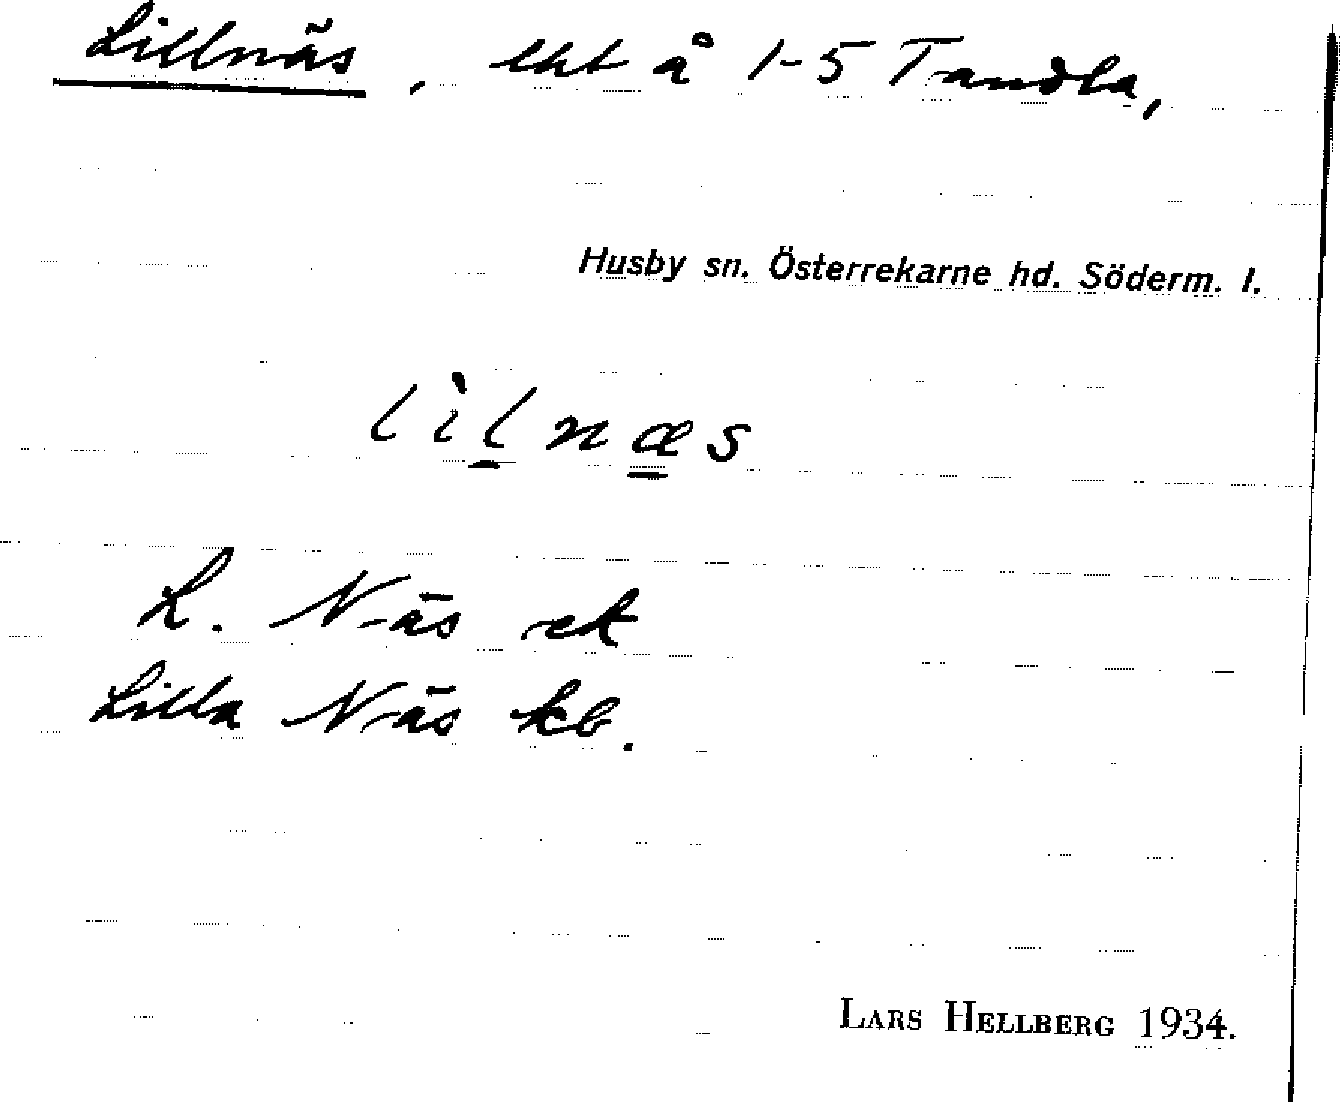 Lillnäs, lht å 1-5 Tandla,
Husby sn. Österrekarne hd. Söderm. l.
lìlnæs
L. Näs ek
Lilla Näs kb.
LARS HELLBERG 1934.